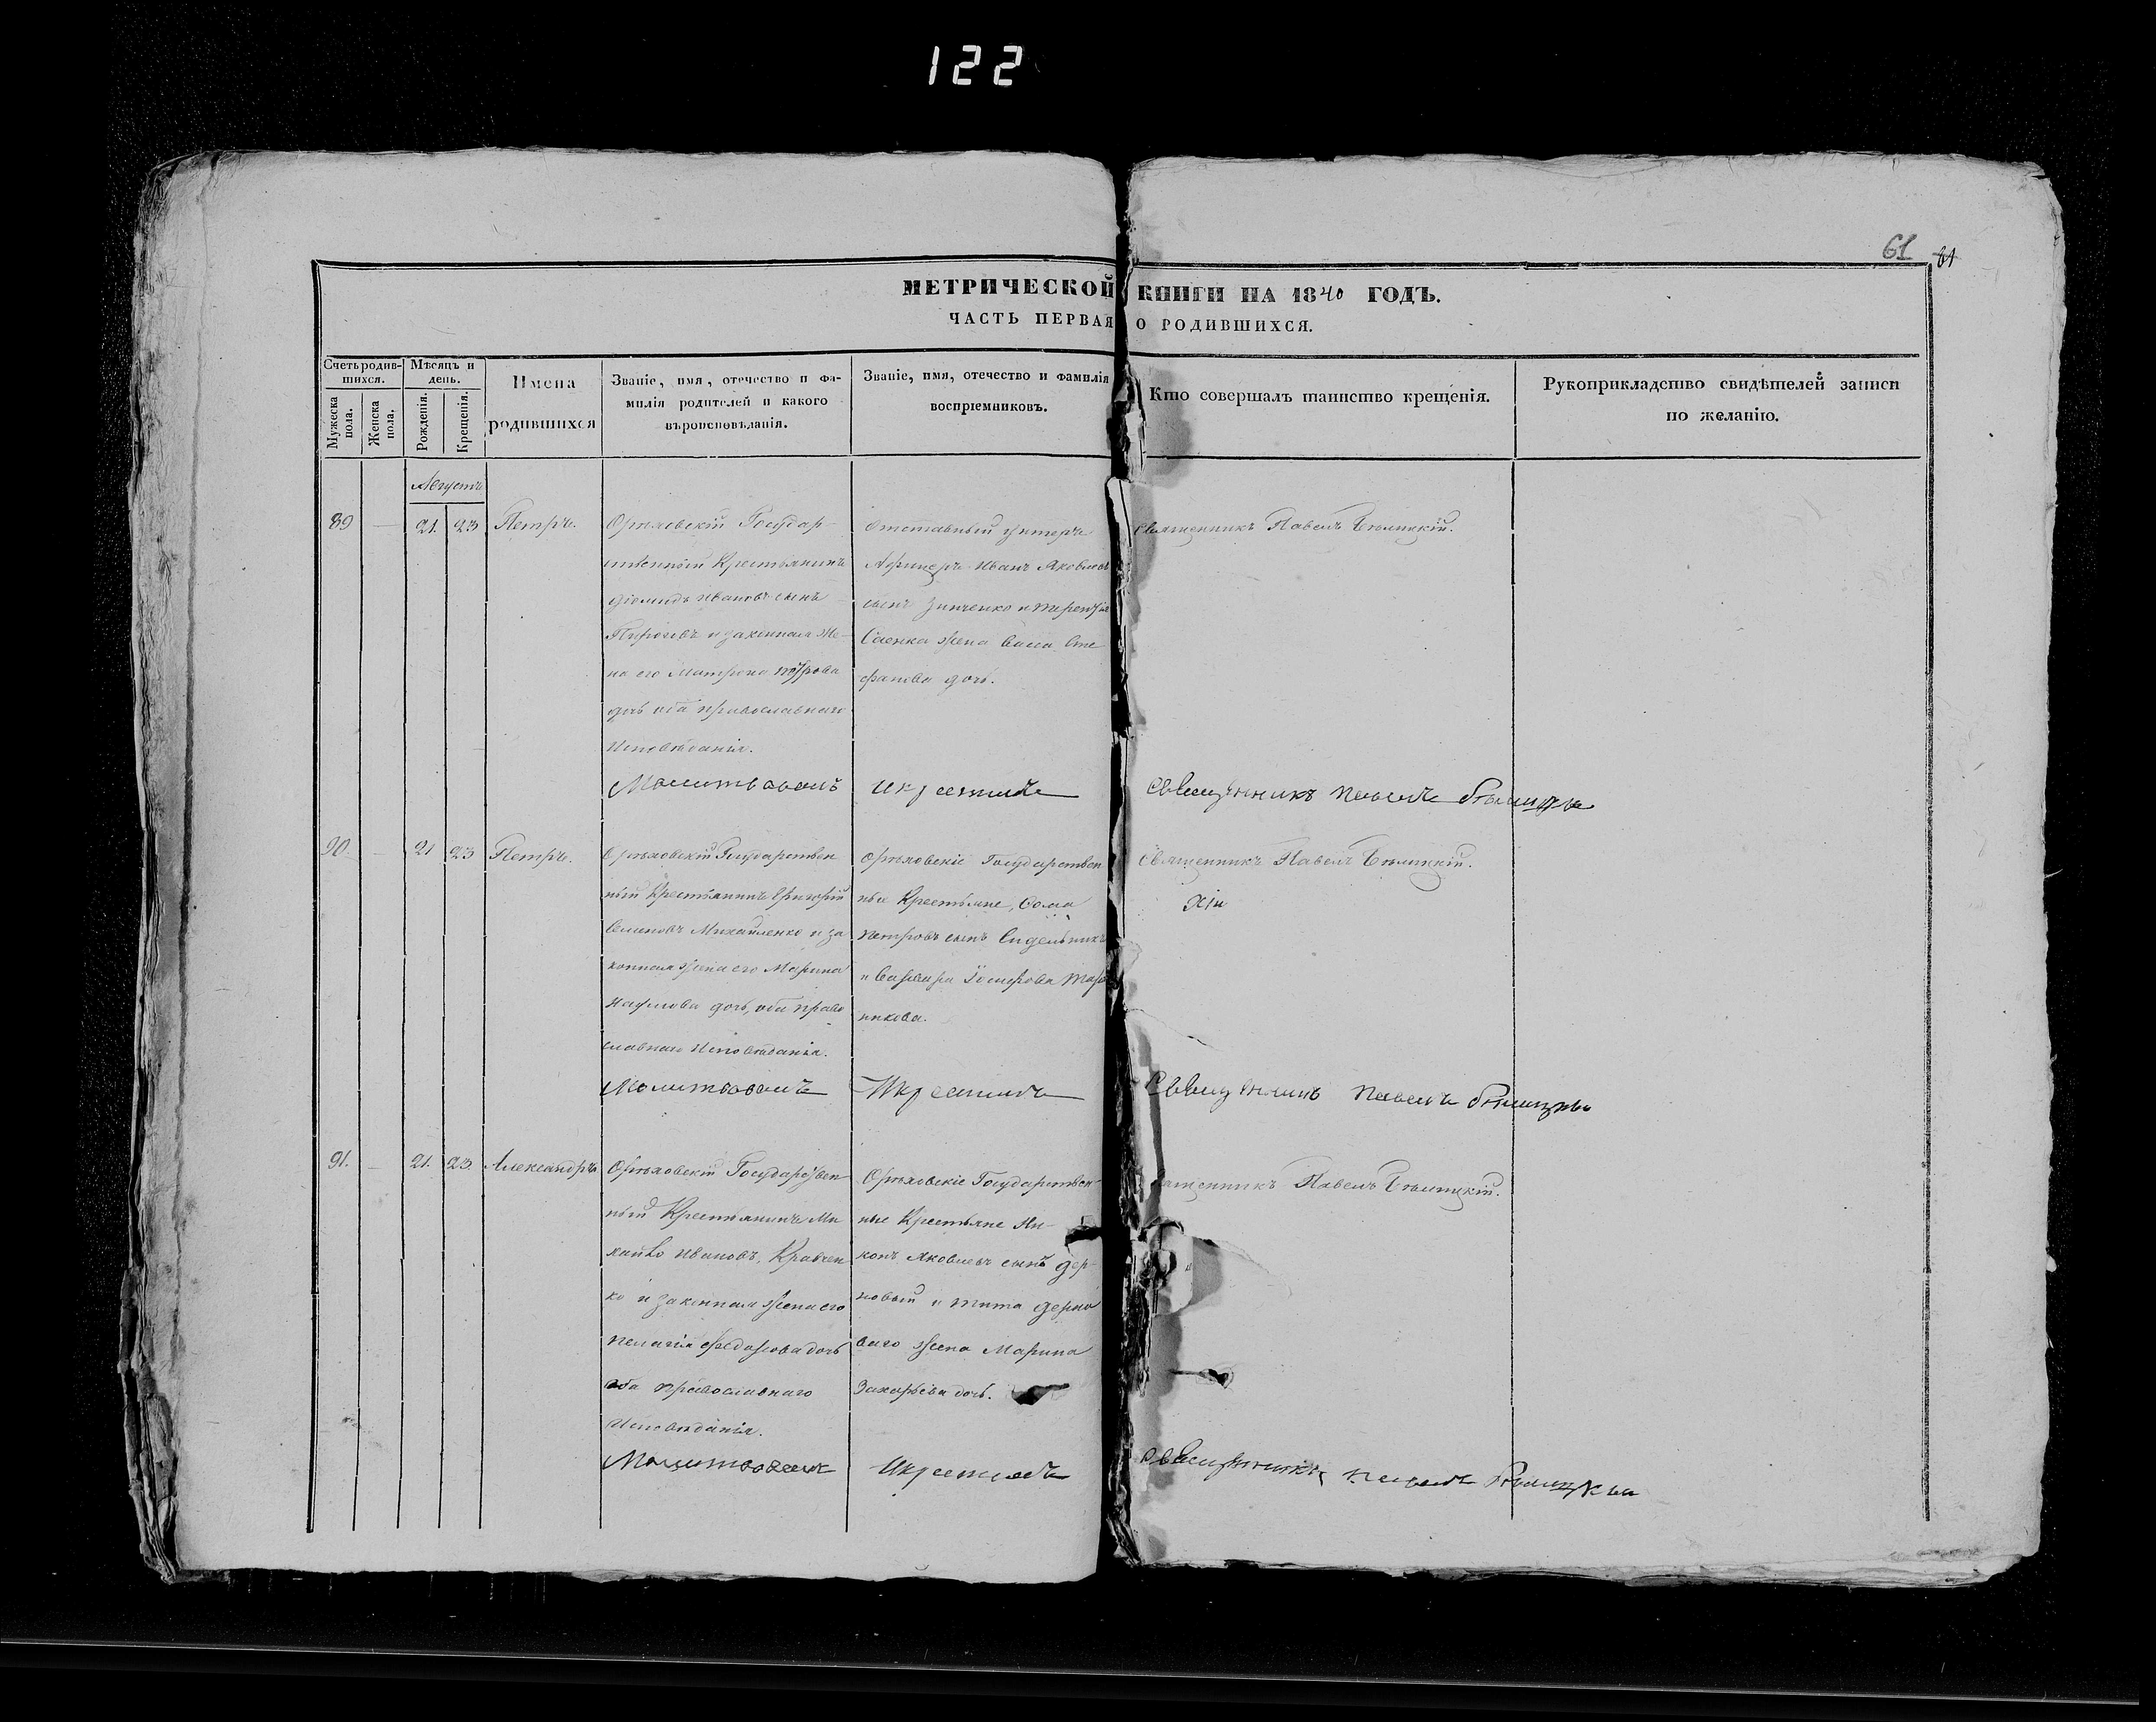 122
61 61
МЕТРИЧЕСКОЙ КНИГИ НА 1840 ГОДЪ.
ЧАСТЬ ПЕРВАЯ О РОДИВШИХСЯ.
Счетъ родив-
шихся.
Мужеска пола.
Женска пола.
Мѣсяцъ и
день.
Рожденія.
Крещенія.
Имена
родившихся
Званіе, имя, отечество и фа-
милія родителей и какого
вѣроисповѣданія.
Званіе, имя, отечество и фамилія
воспріемниковъ.
Кто совершалъ таинство крещенія.
Рукоприкладство свидѣтелей записи
по желанію.
Августъ
89 — 21. 23 Петръ.
Орѣховскій Государ-
ственный Крестьянинъ
Ивановъ сынъ
Пироговъ и законная же-
на его Матрона Петрова
дочь оба православнаго
Исповѣданія.
Отставный Унтеръ
Афицеръ Иванъ Яковлевъ
сынъ Зинченко и Терентія
Саенка жена Васса Сте
фанова дочь.
Священникъ Павелъ Бѣлицкій.
Молитвовалъ и крестилъ Священникъ Павелъ Бѣлицкій
90. — 21 23 Петръ.
Орѣховскій Государствен
ный Крестьянинъ Григорій
Семеновъ Михайленко и за
конная жена его Марина
Наумова дочь, оба право
славнаго Исповѣданія.
Орѣховскіе Государствен
ные Крестьяне, Сома
Петровъ сынъ Сидельник
и Варвара
никова.
Священникъ Павелъ Бѣлицкій.
Молитвовалъ И крестилъ Священникъ Павелъ Бѣлицкій
91. — 21. 23. Александръ
Орѣховскій Государствен
ный Крестьянинъ Ми
хайло Ивановъ, Кравчен
ко и законная жена его
Пелагія Федорова дочь
оба православнаго
Исповѣданія.
Орѣховскіе Государствен-
ные Крестьяне Ни-
конъ Яковлевъ сынъ Дер-
новый и Тита Дерно
ваго жена Марина
Захарьева дочь.
ященникъ Павелъ Бѣлицкій.
Молитвовалъ И крестилъ Священникъ Павелъ Бѣлицкій